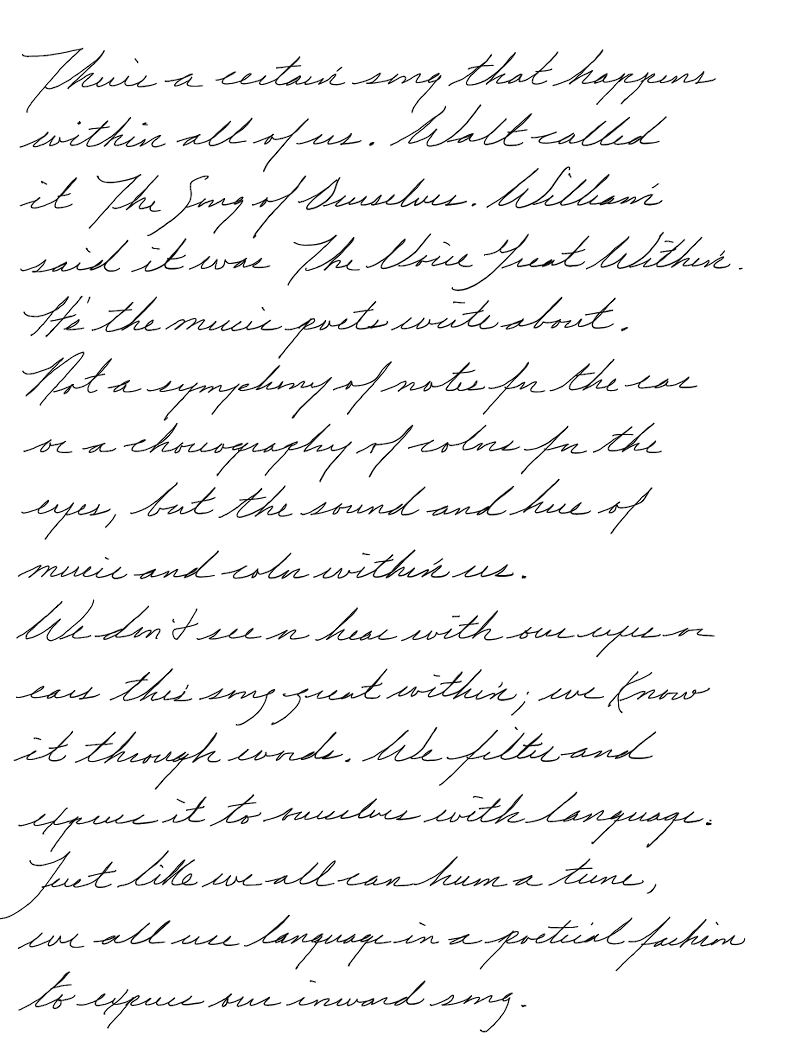 There's a certain song that happens
within all of us. Walt called
it The Song of Ourselves. William
said it was The Voice Great Within.
It's the music poets write about.
Not a symphony of notes for the ear
or a choreography of colors for the
eyes, but the sound and hue of
music and color within us.
We don't see or hear with our eyes or
ears this song great within; we know
it through words. We filter and
express it to ourselves with language.
Just like we all can hum a tune,
we all use language in a poetical fashion
to express our inward song.